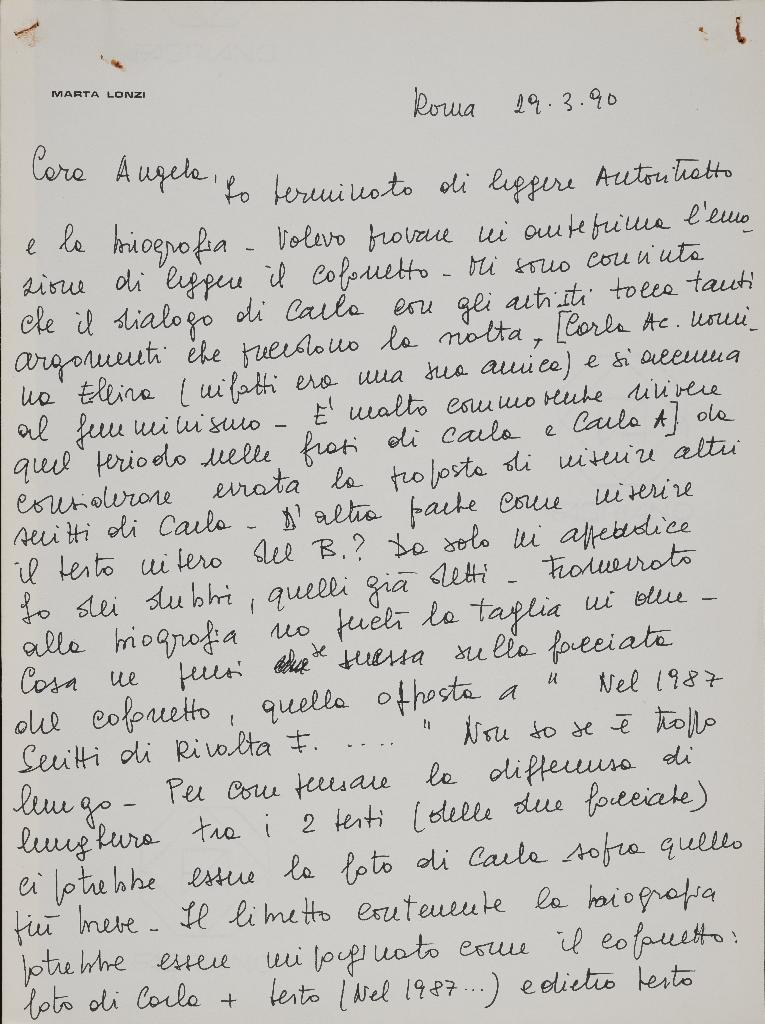 MARTA LONZI
Roma 29.3.90
Cara Angela,
Ho terminato di leggere Autoritratto
e la biografia - Volevo provare in anteprima l'emo-
zione di leggere il cofanetto - Mi sono convinta
che il dialogo di Carla con gli artisti tocca tanti
argomenti che precedono la svolta, [Carla Ac. nomi-
na Elvira (infatti era una sua amica) e si accenna
al femminismo - E' molto commovente rivivere
quel periodo nelle frasi di Carla e Carla A] da
considerare errata la proposta di inserire altri
scritti di Carla - D'altra parte come inserire
il testo intero del B.? Da solo in appendice
Ho dei dubbi, quelli già detti - Frammentato
alla biografia no perché la taglia in due -
Cosa ne pensi se messa sulla facciata
del cofanetto, quella opposta a " Nel 1987
Scritti di Rivolta F. ..... " Non so se è troppo
lungo - Per compensare la differenza di
lunghezza tra i 2 testi (delle due facciate)
ci potrebbe essere la foto di Carla sopra quello
più breve - Il libretto contenente la biografia
potrebbe essere impaginato come il cofanetto:
foto di Carla + testo (Nel 1987...) e dietro testo